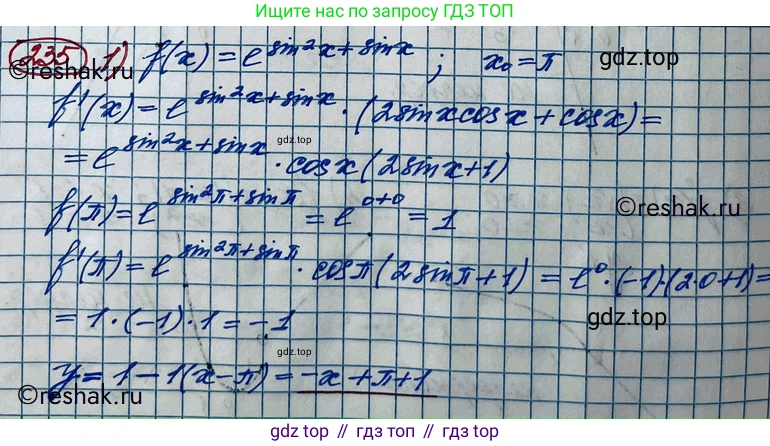 Ищите нас по запросу ГДЗ ТОП
235 1) f(x) = e^{sin²x+sinx} ; x₀ = π gdz.top
©reshak.ru
f'(x) = e^{sin²x+sinx} · (2sinxcosx + cosx) =
gdz.top
= e^{sin²x+sinx} · cosx(2sinx+1)
f(π) = e^{sin²π+sinπ} = e^{0+0} = 1 ©reshak.ru
f'(π) = e^{sin²π+sinπ} · cosπ(2sinπ+1) = e⁰·(-1)(2·0+1) =
gdz.top
= 1·(-1)·1 = -1 gdz.top
gdz.top
y = 1 - 1(x-π) = -x + π + 1
©reshak.ru
gdz top // гдз топ // gdz.top